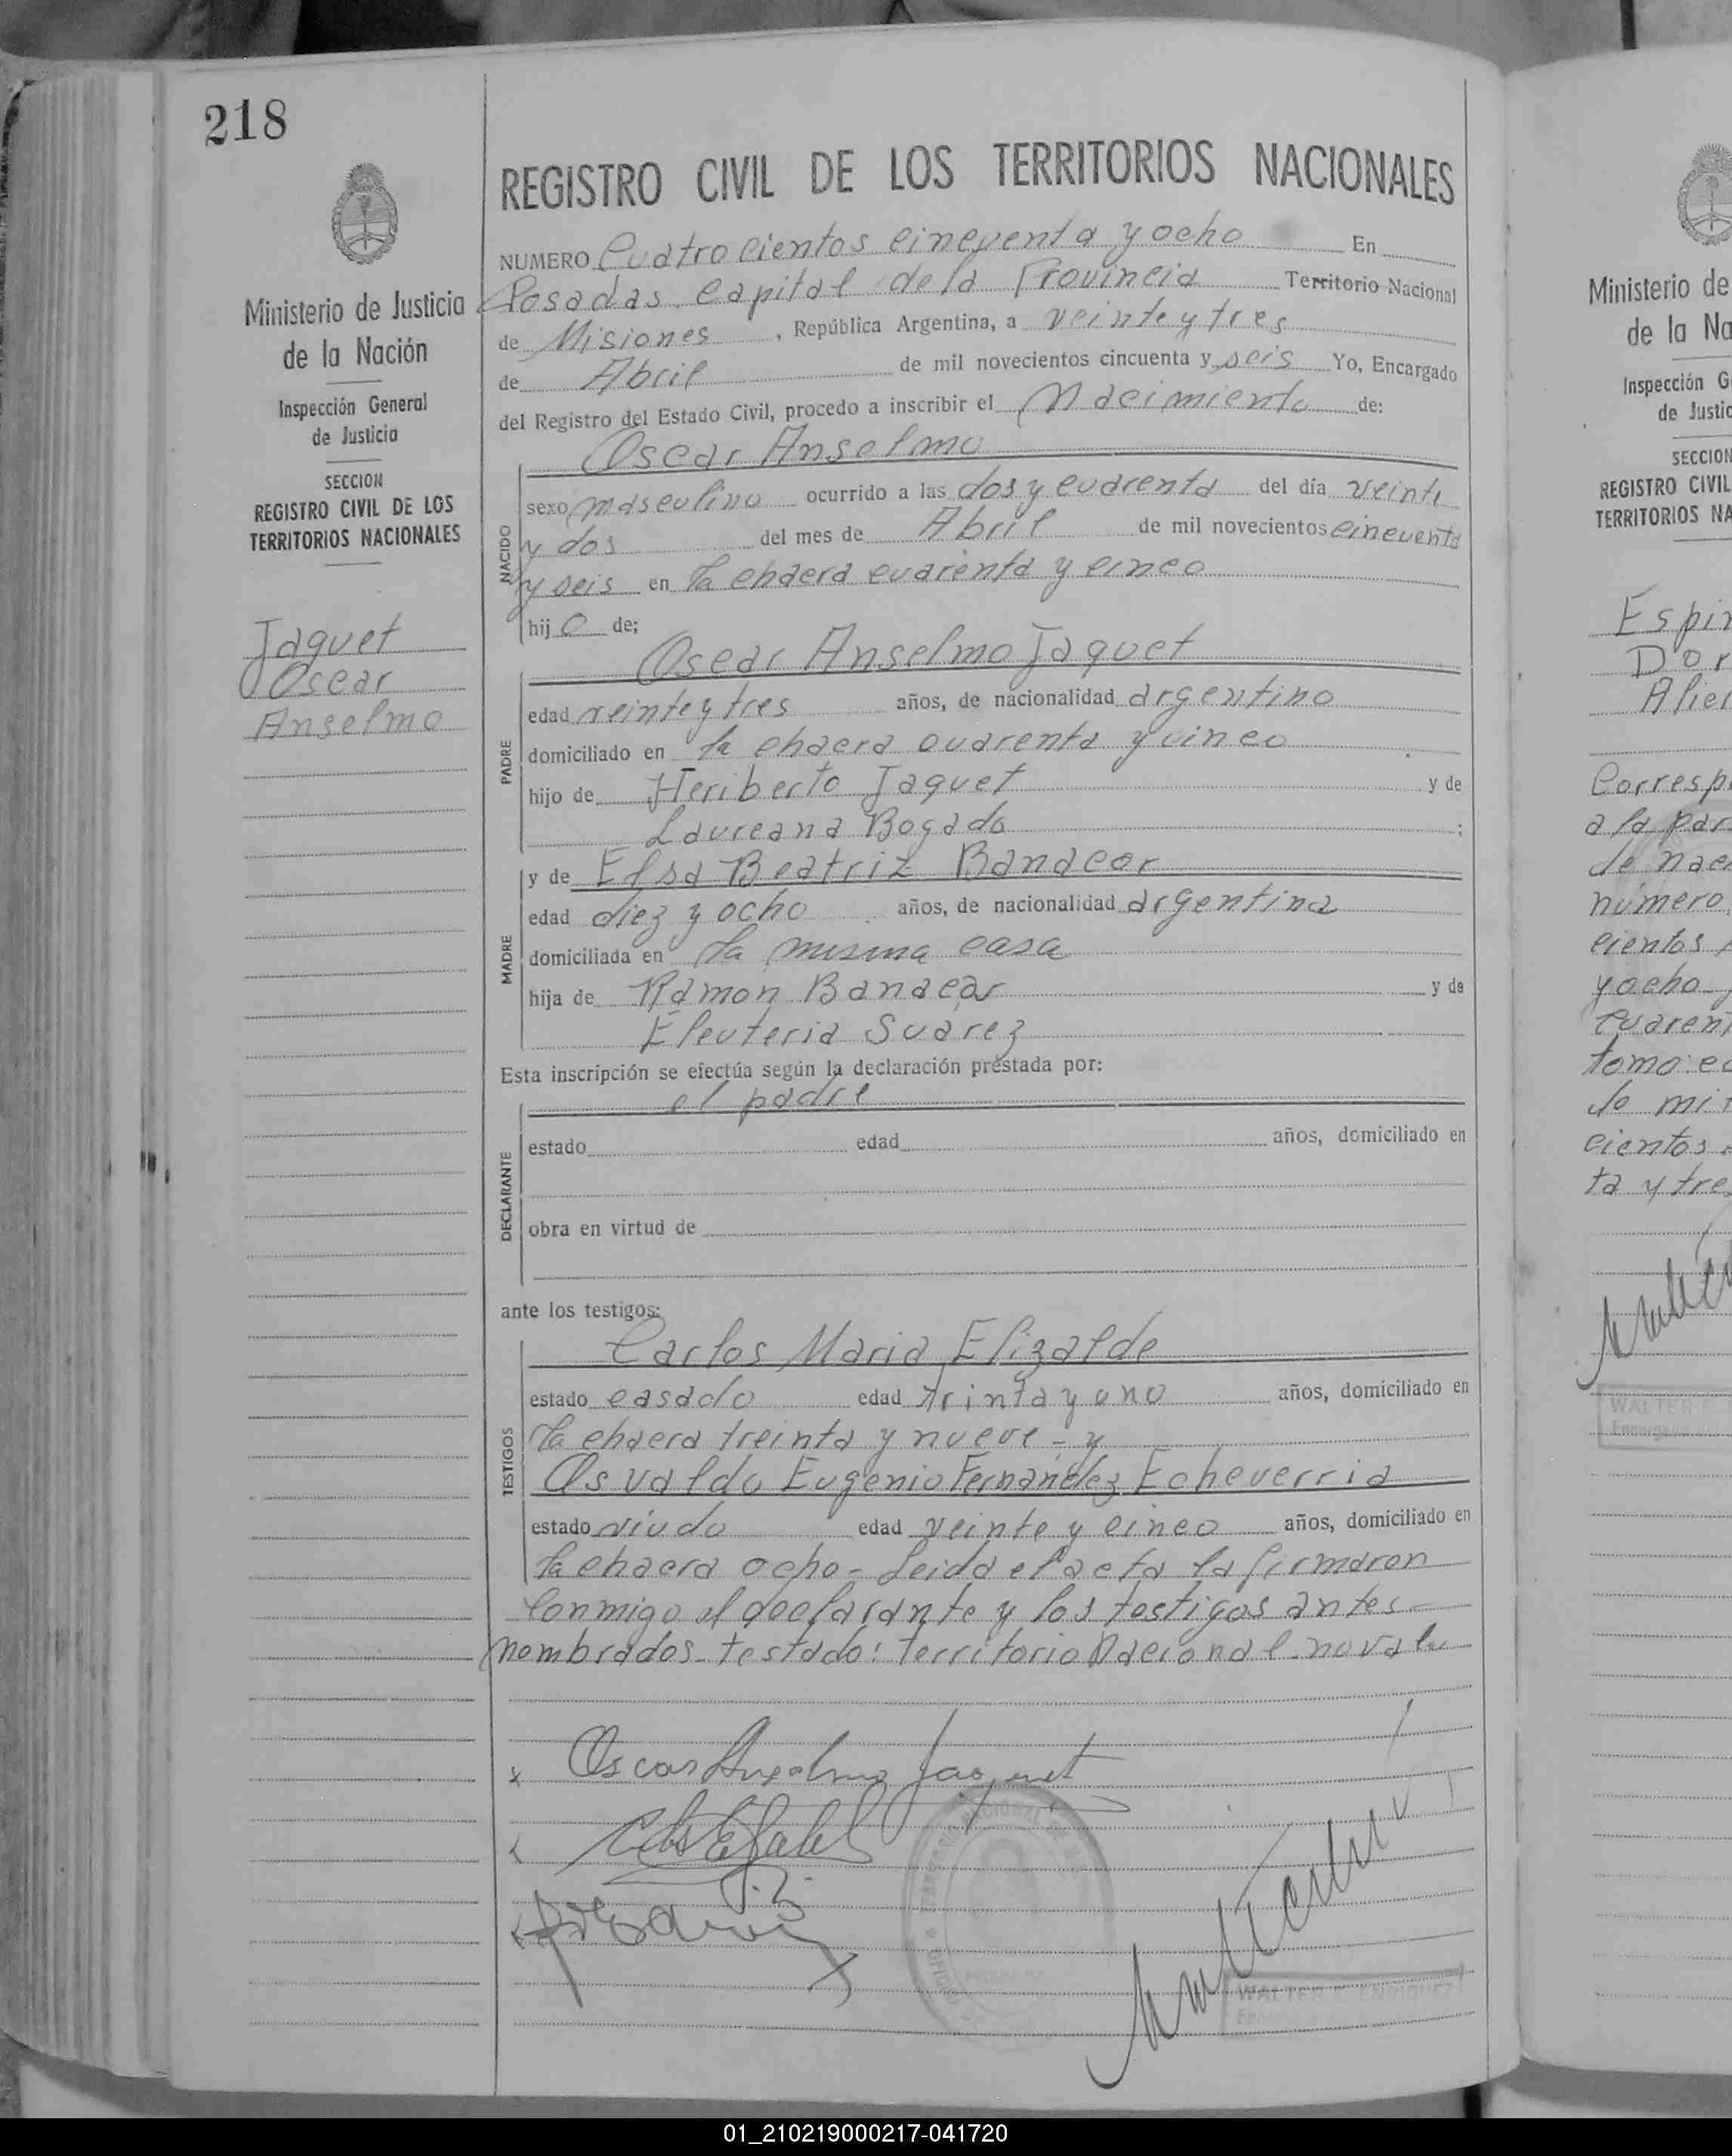 218
Ministerio de Justicia
de la Nación
Inspección General
de Justicia
SECCION
REGISTRO CIVIL DE LOS
TERRITORIOS NACIONALES
Jaquet
Oscar
Anselmo
REGISTRO CIVIL DE LOS TERRITORIOS NACIONALES
NUMERO Cuatrocientos cincuenta y ocho En
Posadas Capital de la Provincia Territorio Nacional
de Misiones, República Argentina, a veinte y tres
de Abril de mil novecientos cincuenta y seis Yo, Encargado
del Registro del Estado Civil, procedo a inscribir el Nacimiento de:
Oscar Anselmo
NACIDO
sexo masculino ocurrido a las dos y cuarenta del día veinti
y dos del mes de Abril de mil novecientos cincuenta
y seis en la chacra cuarenta y cinco
hijo de;
Oscar Anselmo Jaquet
PADRE
edad veinte y tres años, de nacionalidad argentino
domiciliado en la chacra cuarenta y cinco
hijo de Heriberto Jaquet y de
Laureana Bogado ;
y de Elsa Beatriz Banacor
MADRE
edad diez y ocho años, de nacionalidad argentina
domiciliada en la misma casa
hija de Ramon Banacor y de
Eleuteria Suarez
Esta inscripción se efectúa según la declaración prestada por:
el padre
DECLARANTE
estado edad años, domiciliado en
obra en virtud de
ante los testigos:
Carlos Maria Elizalde
TESTIGOS
estado casado edad trinta y uno años, domiciliado en
la chacra treinta y nueve - y
Osvaldo Eugenio Fernandez Echeverria
estado viudo edad veinte y cinco años, domiciliado en
la chacra ocho - Leida el acta la firmaron
conmigo el declarante y los testigos antes
nombrados - testado: territorio Nacional - no vale
Oscar Anselmo Jaquet
WALTER E. ENRIQUEZ
Ministerio de
de la Na
Inspección G
de Justic
SECCION
REGISTRO CIVIL
TERRITORIOS NA
Espin
Dor
Alici
Corresp
a la par
de nac
número
cientos
y ocho
cuaren
tomo
de mi
cientos
ta y tre
WALTER E
01_210219000217-041720